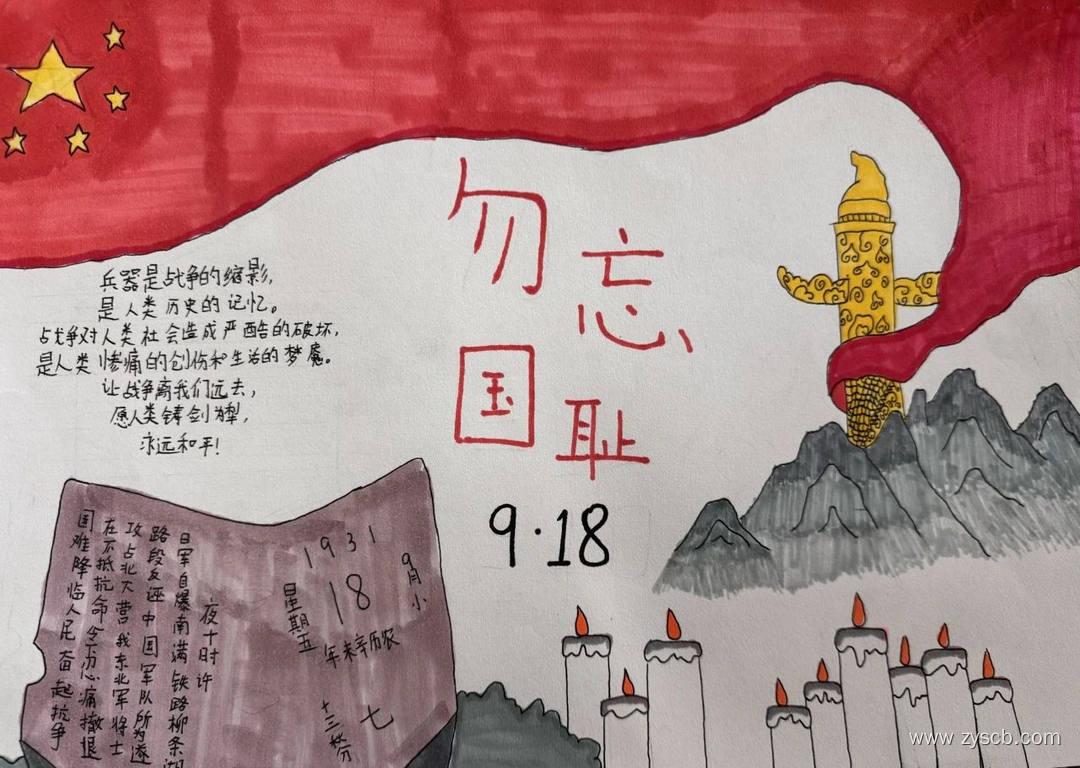 勿忘
国耻
9·18
兵器是战争的缩影,
是人类历史的记忆。
战争对人类社会造成严酷的破坏,
是人类惨痛的创伤和生活的梦魇。
让战争离我们远去,
愿人类铸剑为犁,
永远和平!
1931
9月小
18
星期五
年未辛历农
七
十三秋分
夜十时许
日军自爆南满铁路柳条湖
路段反诬中国军队所为遂
攻占北大营我东北军将士
在不抵抗命令下忍痛撤退
国难降临人民奋起抗争
www.zyscb.com